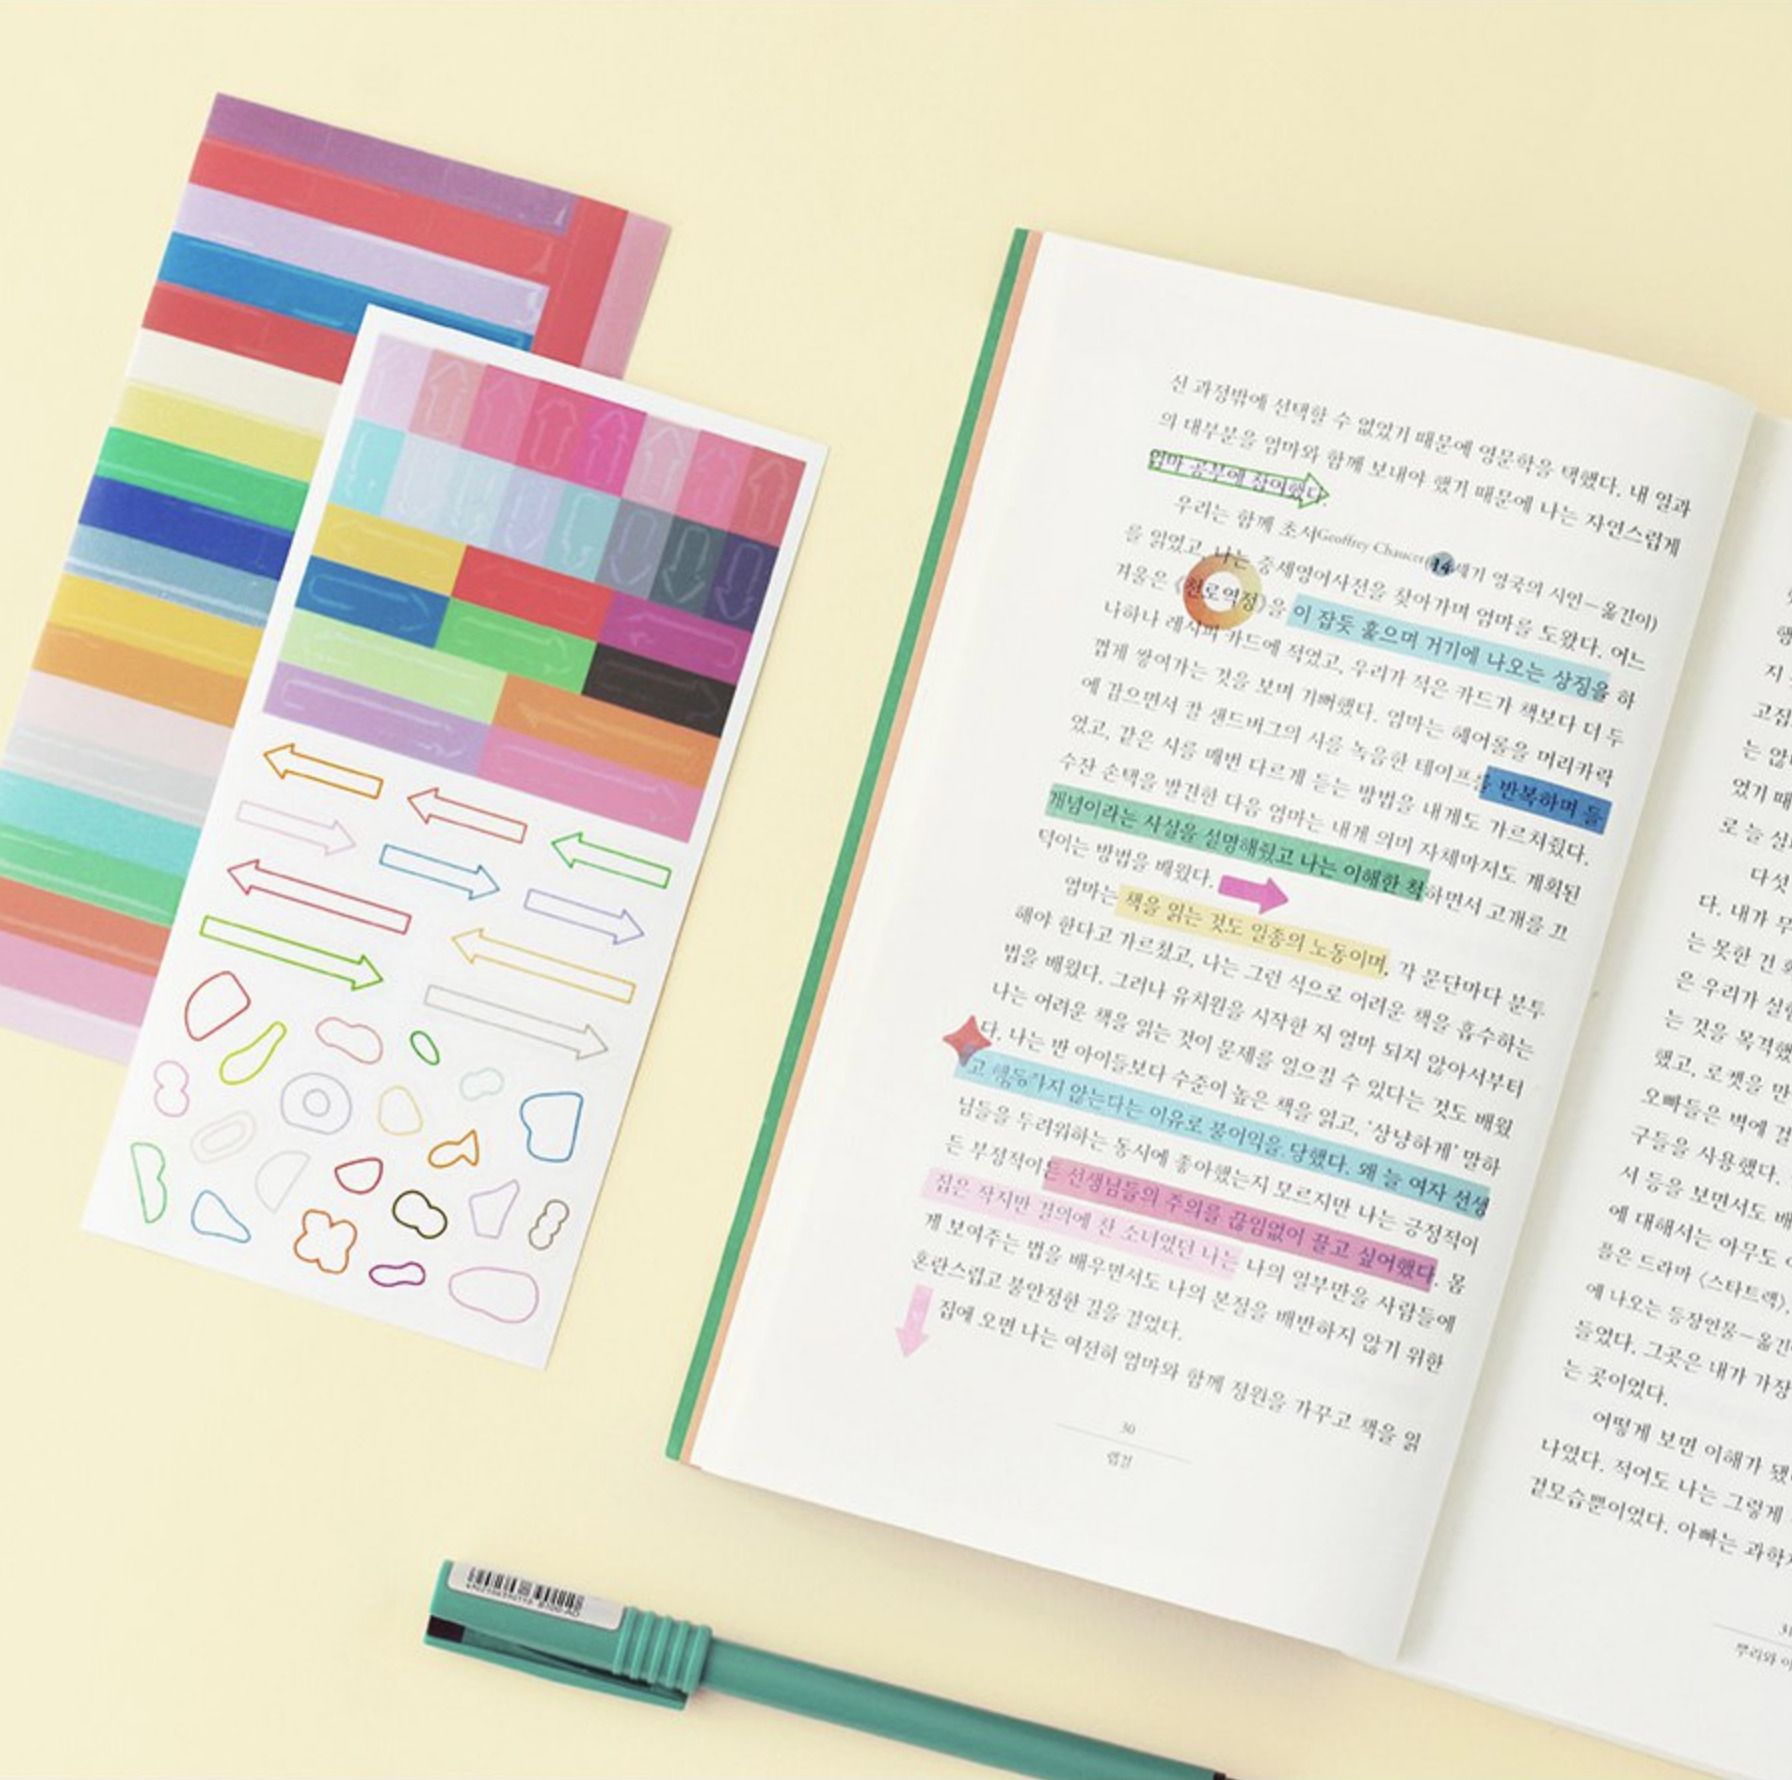 신 과정밖에 선택할 수 없었기 때문에 영문학을 택했다. 내 일과
의 대부분을 엄마와 함께 보내야 했기 때문에 나는 자연스럽게
엄마 공부에 참여했다.
우리는 함께 초서Geoffrey Chaucer(14세기 영국의 시인―옮긴이)
를 읽었고, 나는 중세영어사전을 찾아가며 엄마를 도왔다. 어느
겨울은 《천로역정》을 이 잡듯 훑으며 거기에 나오는 상징을 하
나하나 레시피 카드에 적었고, 우리가 적은 카드가 책보다 더 두
껍게 쌓여가는 것을 보며 기뻐했다. 엄마는 헤어롤을 머리카락
에 감으면서 칼 샌드버그의 시를 녹음한 테이프를 반복하며 들
었고, 같은 시를 매번 다르게 듣는 방법을 내게도 가르쳐줬다.
수잔 손택을 발견한 다음 엄마는 내게 의미 자체마저도 계획된
개념이라는 사실을 설명해줬고 나는 이해한 척하면서 고개를 끄
덕이는 방법을 배웠다.
엄마는 책을 읽는 것도 일종의 노동이며, 각 문단마다 분투
해야 한다고 가르쳤고, 나는 그런 식으로 어려운 책을 흡수하는
법을 배웠다. 그러나 유치원을 시작한 지 얼마 되지 않아서부터
나는 어려운 책을 읽는 것이 문제를 일으킬 수 있다는 것도 배웠
다. 나는 반 아이들보다 수준이 높은 책을 읽고, ‘상냥하게’ 말하
고 행동하지 않는다는 이유로 불이익을 당했다. 왜 늘 여자 선생
님들을 두려워하는 동시에 좋아했는지 모르지만 나는 긍정적이
든 부정적이든 선생님들의 주의를 끊임없이 끌고 싶어했다. 몸
집은 작지만 결의에 찬 소녀였던 나는 나의 일부만을 사람들에
게 보여주는 법을 배우면서도 나의 본질을 배반하지 않기 위한
혼란스럽고 불안정한 길을 걸었다.
집에 오면 나는 여전히 엄마와 함께 정원을 가꾸고 책을 읽
30
랩걸
행
지
고집
는 않
었기 때
로 늘 심
다섯
다. 내가 무
는 못한 건
은 우리가
는 것을 목격했
했고, 로켓을 만
오빠들은 벽에 걸
구들을 사용했다.
서 등을 보면서도 배
에 대해서는 아무도
플은 드라마 〈스타트렉〉,
에 나오는 등장인물―옮긴
들었다. 그곳은 내가 가장
는 곳이었다.
어떻게 보면 이해가 됐
나였다. 적어도 나는 그렇게
겉모습뿐이었다. 아빠는 과학
31
뿌리와 이